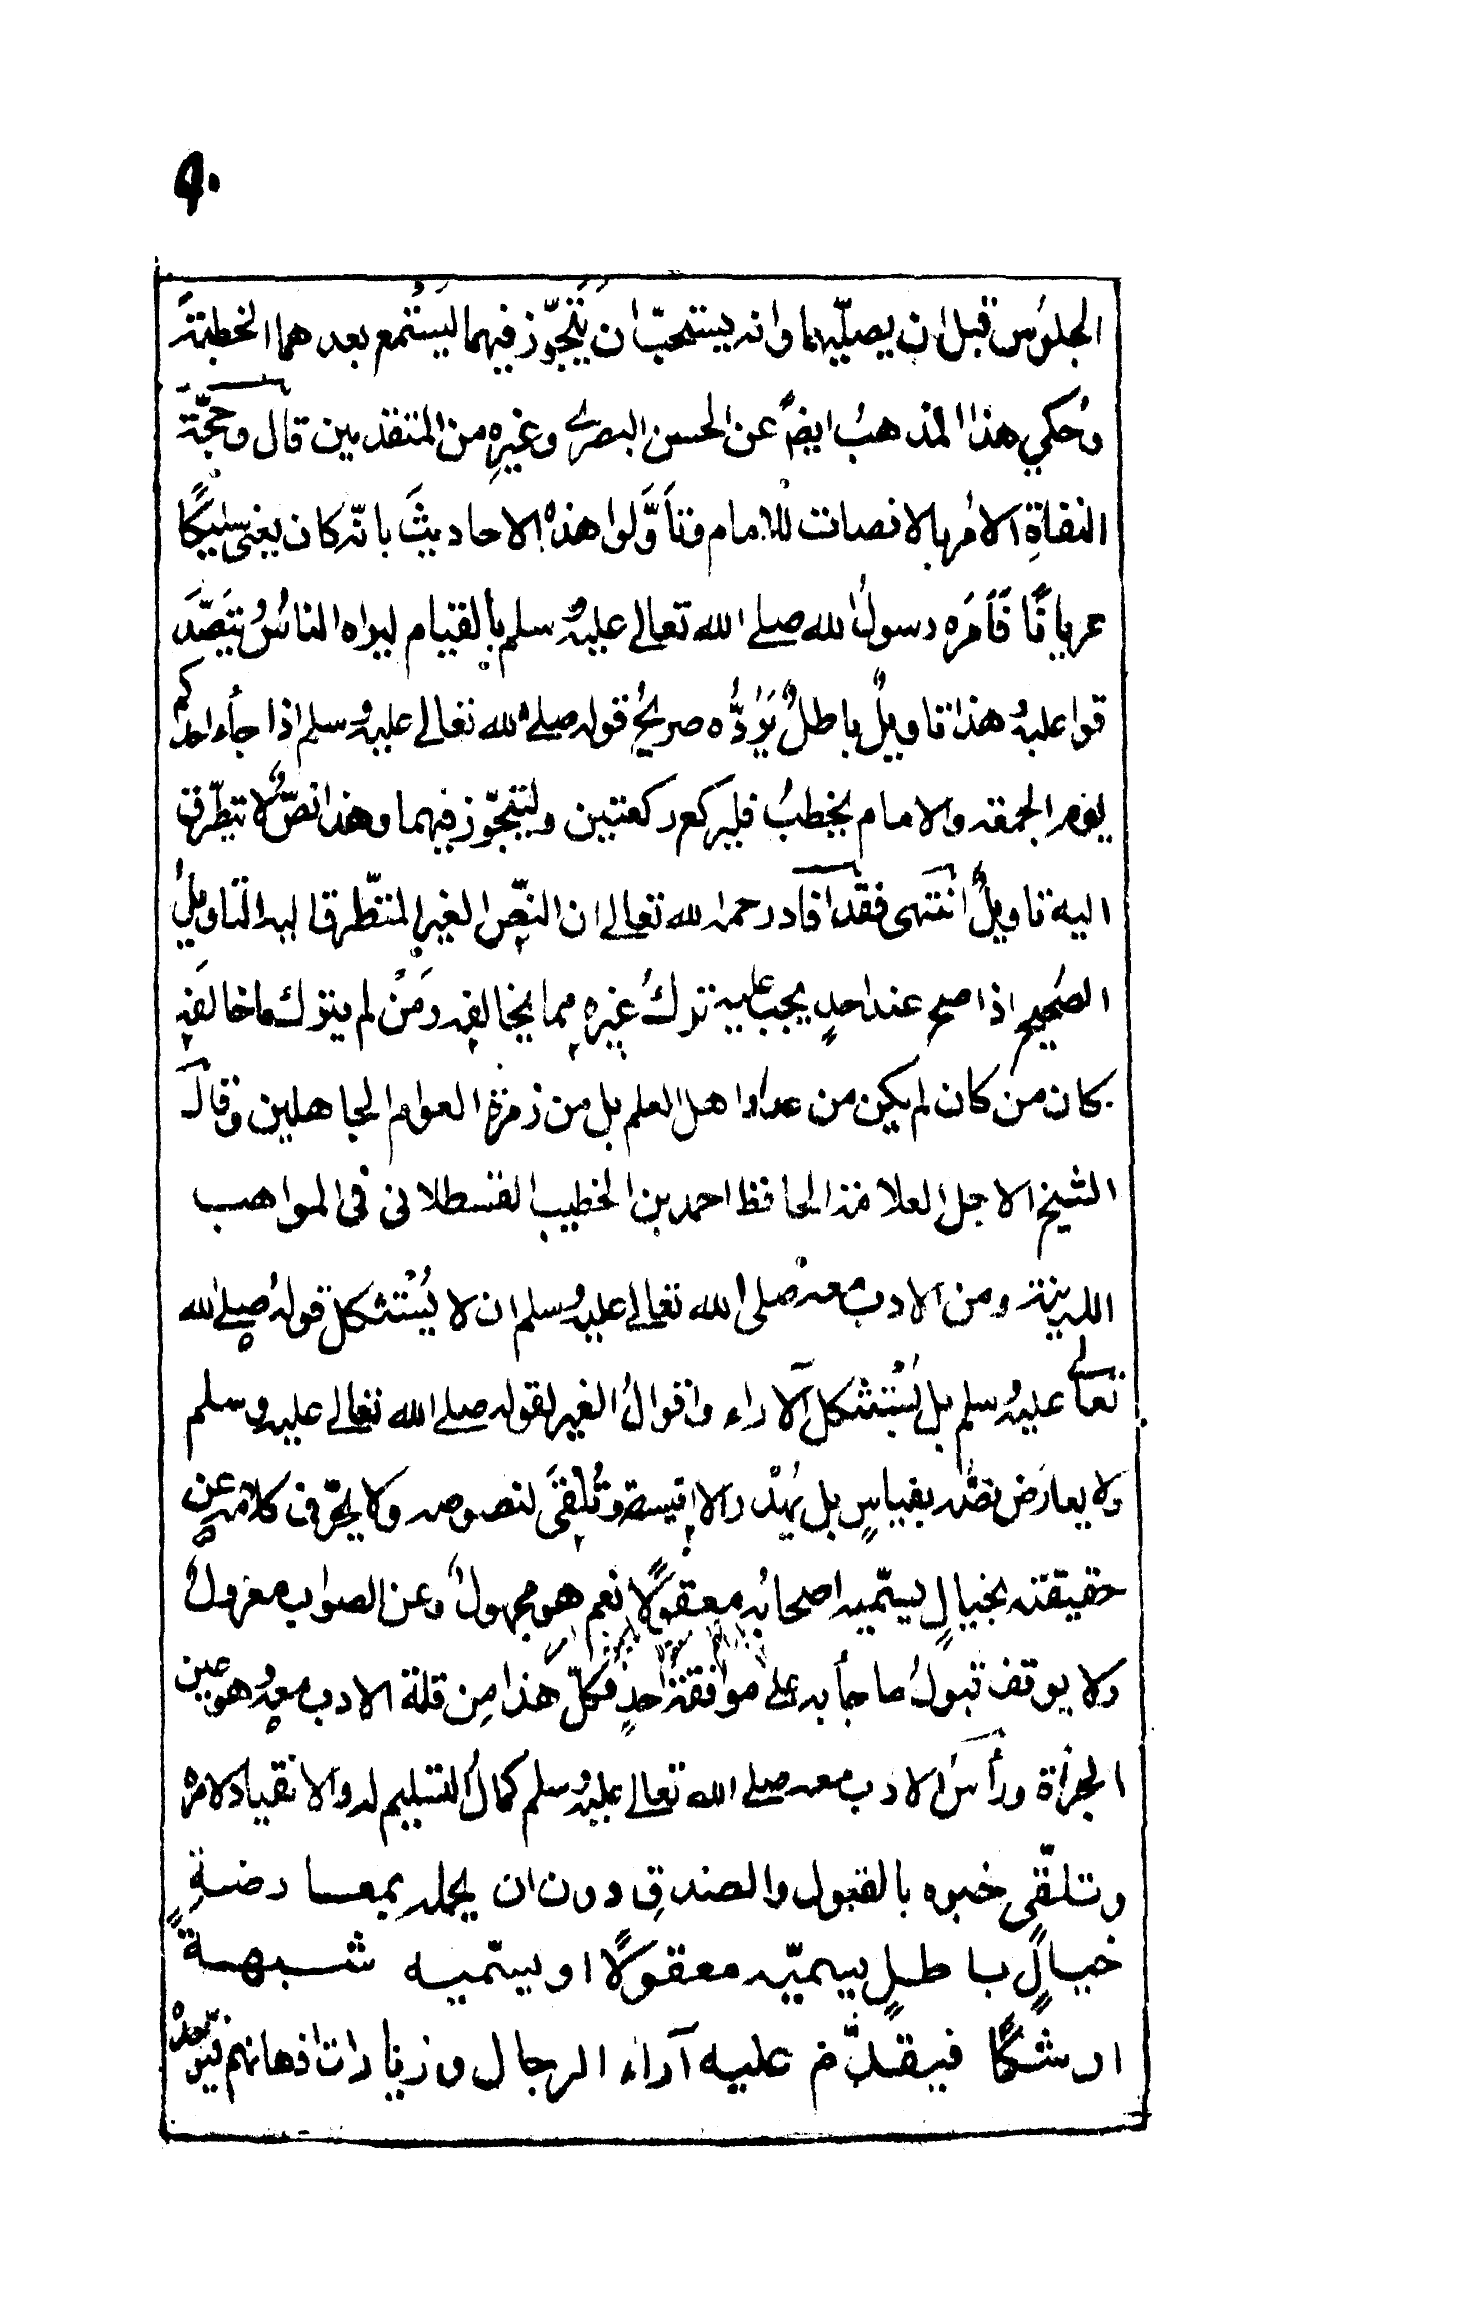 ٩٠
الجلوس قبل ان يصلّيهما وانه يستحبّ ان يَّتَجوّز فيهما ليَسْتمع بعدهما الخطبةَ
وحُكي هذا المذهبُ ايضً عن الحسن البصرے وغيرهِ من المتقدمين قال وحجّة
النفاةِ الامرُ بالانصات للامام وتأوَّلوا هذه الاحاديثَ بانّه كان يعنى سُلَيكًا
عريانًا فَأمَره رسولُ الله صلے الله تعالے عليه وسلم بالقيام ليراه الناسُ يتَصّدَ
قوا عليه وهذا تاويلٌ باطلٌ يَرُدُّه صريحُ قوله صلے الله تعالے عليه وسلم اذا جاء احدكم
يوم الجمعة والامام يخطبُ فليركع ركعتين وليتجوّز فيهما وهذا نصٌّ لا يتطرّق
اليه تاويلٌ انتهى فقد افاد رحمه الله تعالے ان النصّ الغير المتطّرق اليه التاويلُ
الصحيح اذا صح عند احدٍ يجب عليه تركُ غيرهِ مما يخالفه ومَنْ لم يترك ما خالفَه
كان من كان لم يكن من عداد اهل العلم بل من زمرة العوام الجاهلين وقال
الشيخ الاجل العلامة الحافظ احمد بن الخطيب القسطلانى فى المواهب
اللدنية ومن الادب معه صلى الله تعالے عليه وسلم ان لا يُسْتشكل قوله صلے الله
تعالے عليه وسلم بل يُسْتشكل الآراء واقوالُ الغير لقوله صلے الله تعالے عليه وسلم
ولا يعارض نصّه بقياسٍ بل يُهْدر الاقيسة وتُلْقَى لنصوصه ولا يحرّف كلامه عن
حقيقته بخيالٍ يسمّيه اصحابُه معقولًا نعم هو مجهولٌ وعن الصواب معزولٌ
ولا يوقف قبولُ ما جاء به على موافقة احدٍ فكلّ هذا مِن قلة الادب معه وهو عين
الجرأة ورأسُ الادب معه صلے الله تعالے عليه وسلم كمالُ التسليم له والانقياد لامره
وتلقّى خبره بالقبول والصدقِ دون ان يحمله بمعارضةِ
خيالٍ باطلٍ يسميّه معقولًا او يسمّيه شبهةً
او شكًا فيقدّم عليه آراء الرجال وزيادات اذهانهم